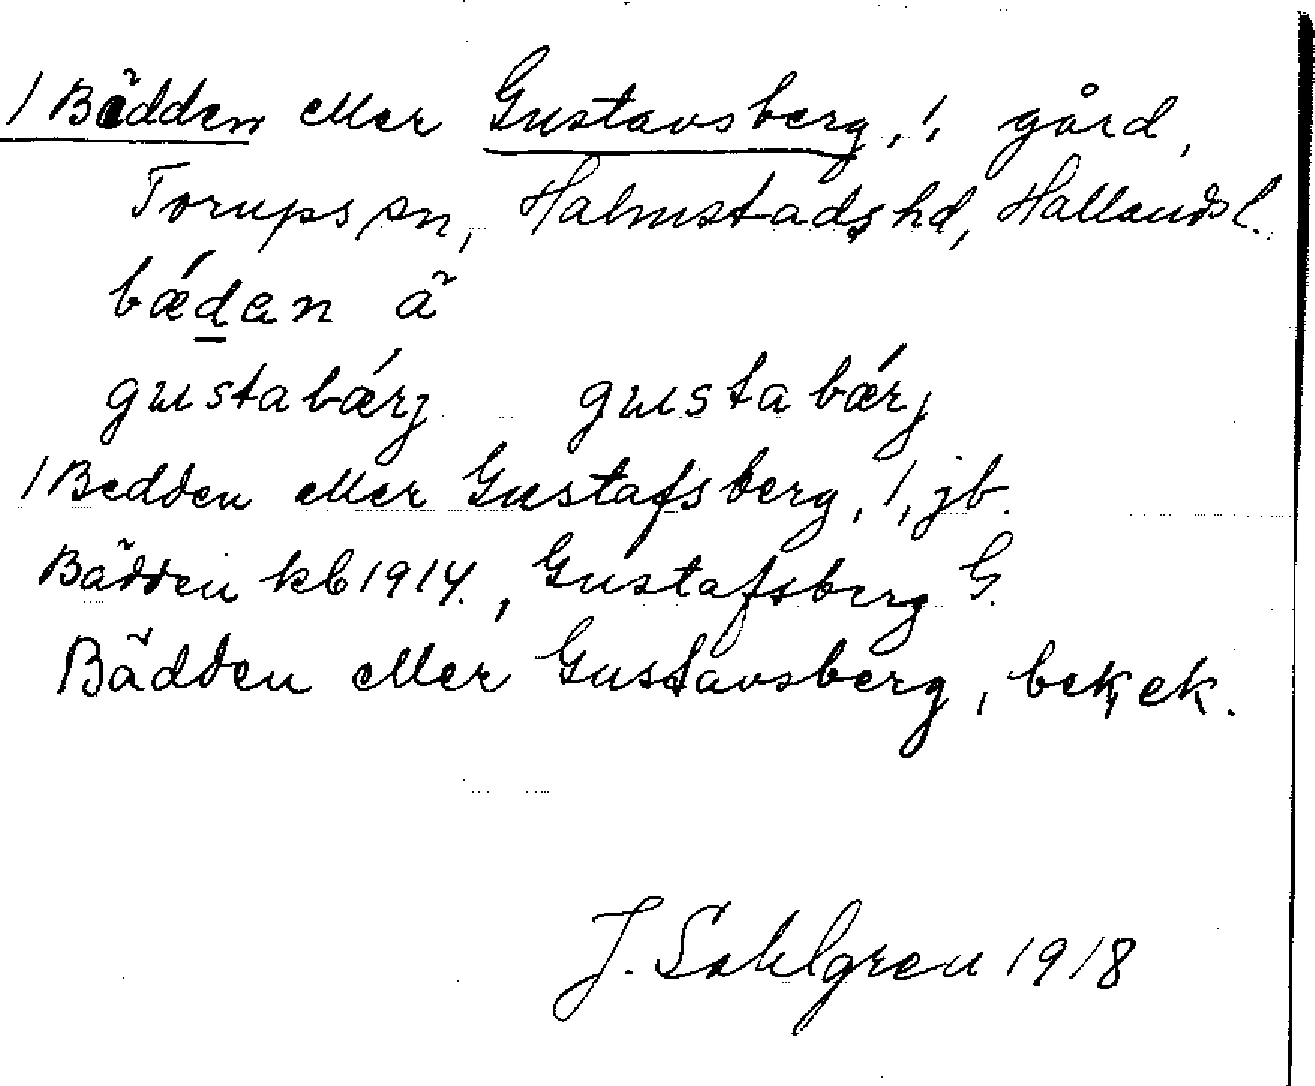 1 Bädden eller Gustavsberg, 1, gård,
Torups sn, Halmstads hd, Hallands l.
bǽdan ä
gustabǽrj gustabǽrj
1 Bedden eller Gustafsberg, 1, jb.
Bädden kb 1914., Gustafsberg G.
Bädden eller Gustavsberg, bek, ek.
J. Sahlgren 1918